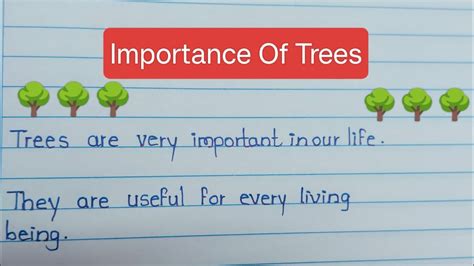 Importance Of Trees
Trees are very important in our life.
They are useful for every living
being.